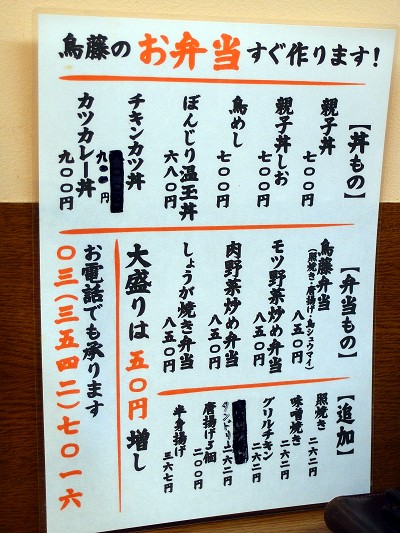 鳥藤のお弁当すぐ作ります!
【丼もの】
親子丼
七〇〇円
親子丼しお
七〇〇円
鳥めし
七〇〇円
ぼんじり温玉丼
六八〇円
チキンカツ丼
円
カツカレー丼
九〇〇円
【弁当もの】
鳥藤弁当
(照焼き・唐揚げ・鳥シュウマイ)
八五〇円
モツ野菜炒め弁当
八五〇円
肉野菜炒め弁当
八五〇円
しょうが焼き弁当
八五〇円
大盛りは五〇円増し
お電話でも承ります
〇三(三五四二)七〇一六
【追加】
照焼き
二六二円
味噌焼き
二六二円
グリルチキン
二六二円
二六二円
唐揚げ3個
二〇〇円
半身揚げ
三六七円